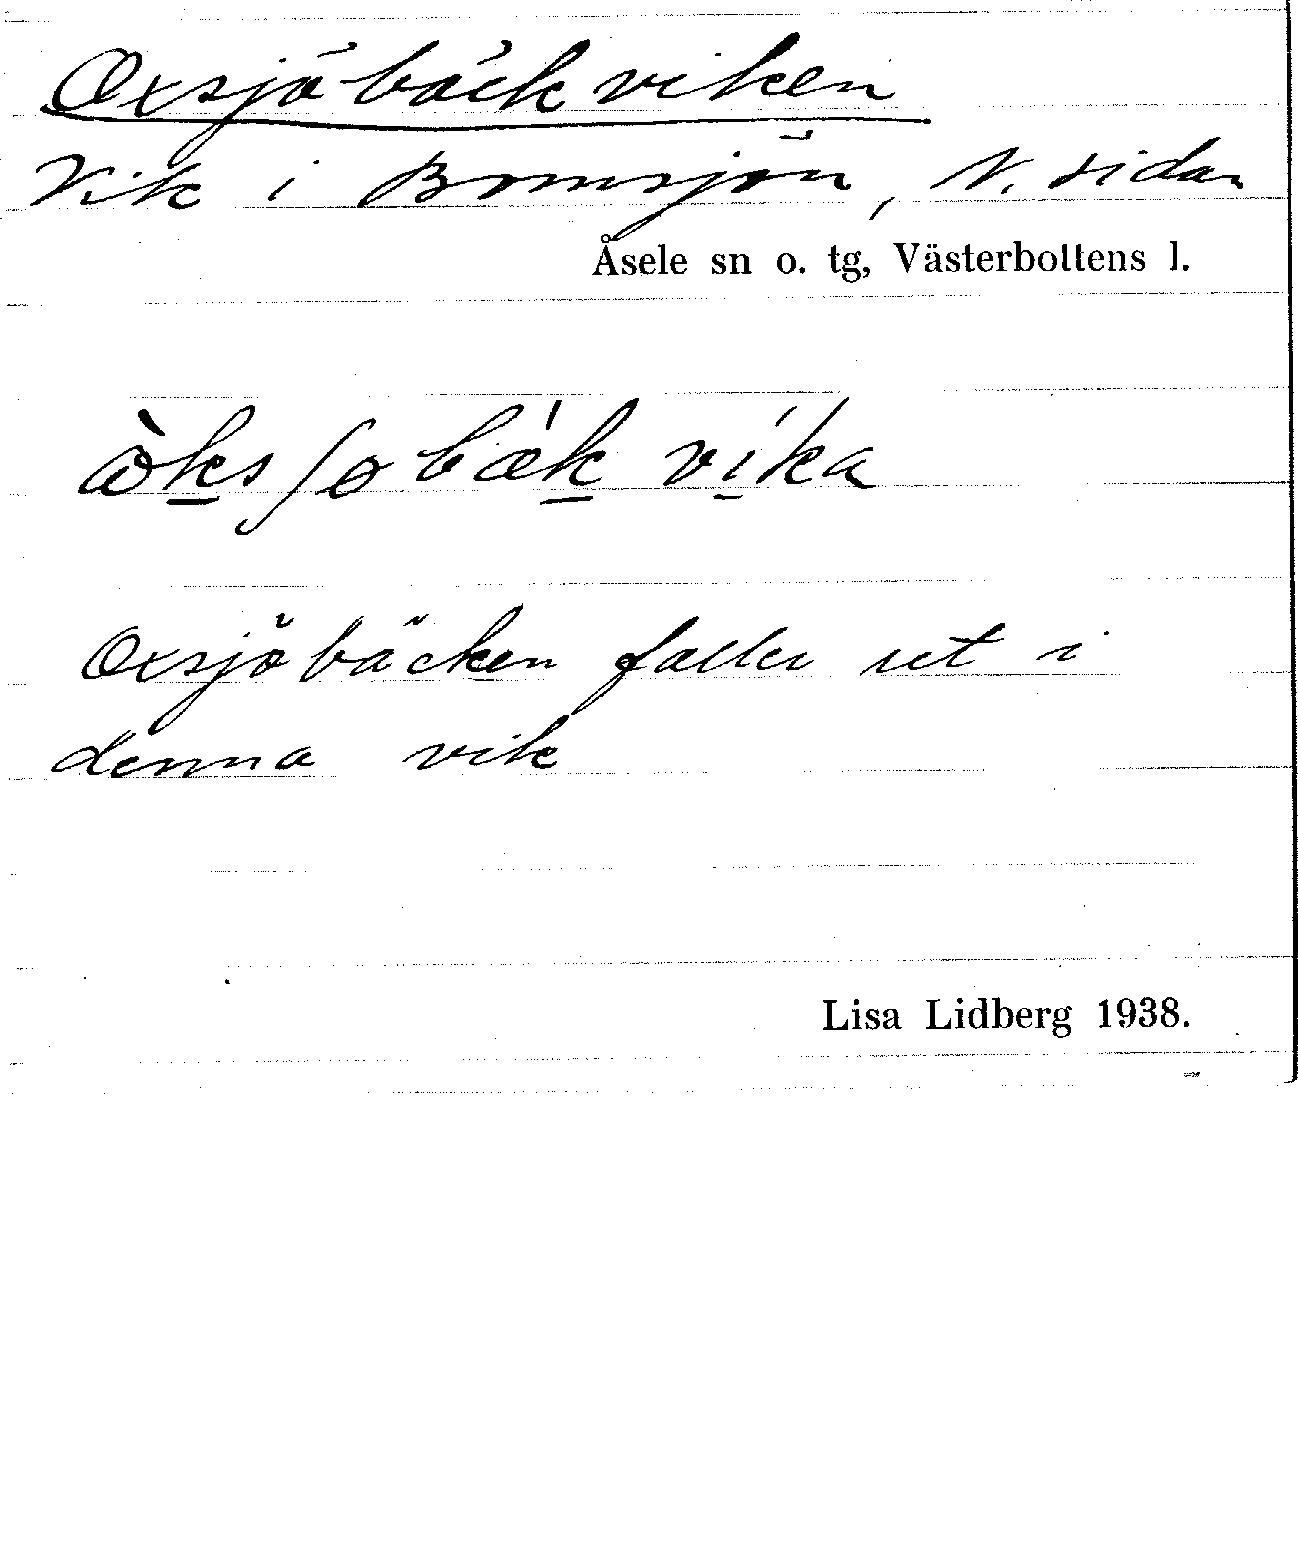 Oxsjöbäckviken
Vik i Bomsjön, N. sidan
Åsele sn o. tg, Västerbottens l.
Oxsjöbäcken faller ut i
denna vik
Lisa Lidberg 1938.